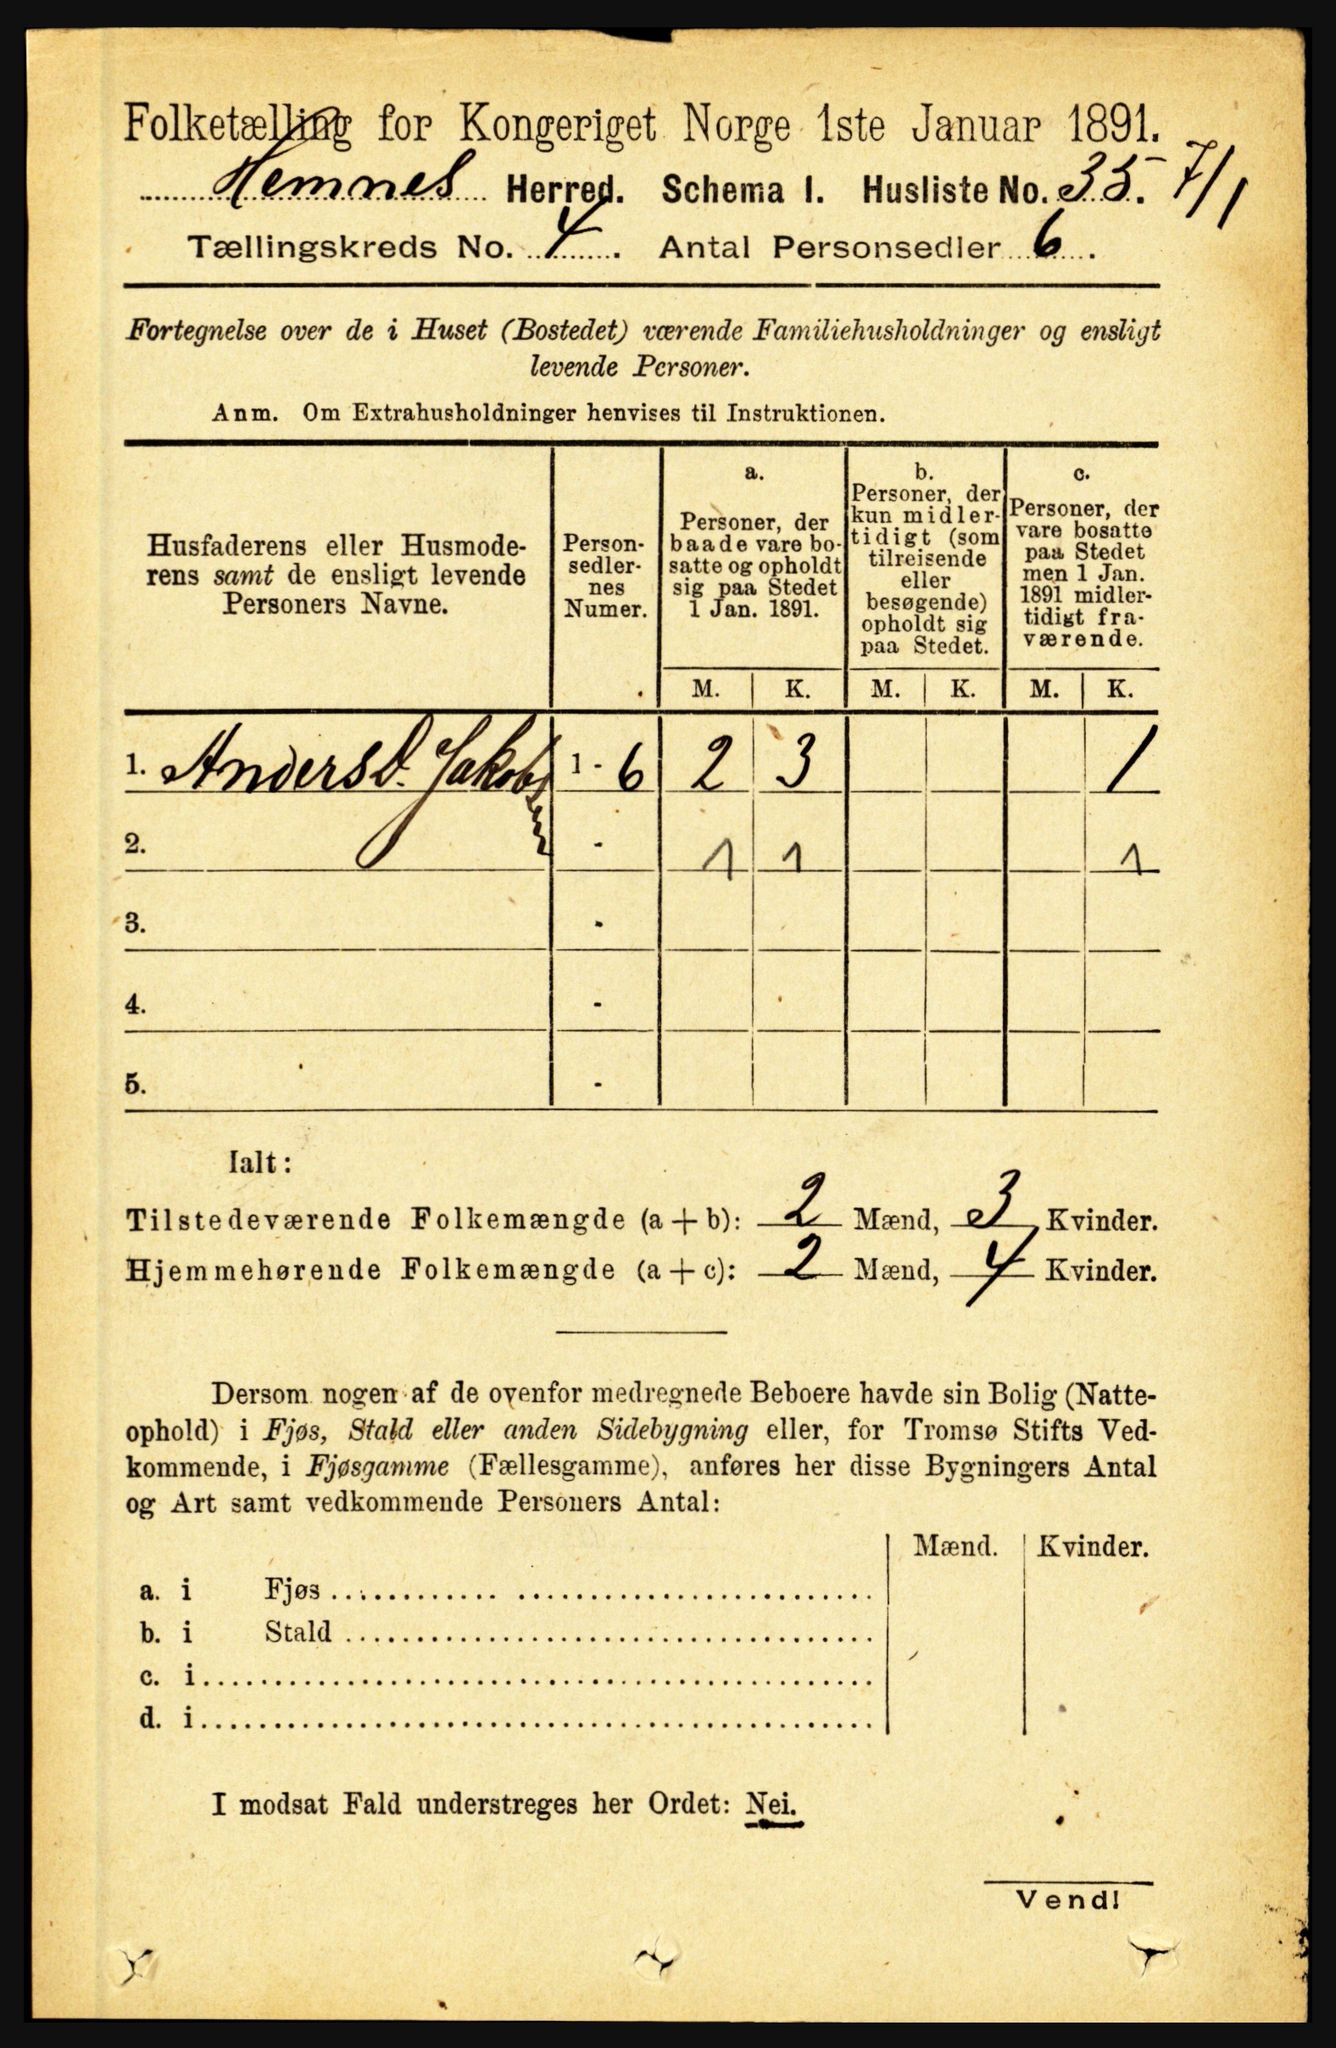 Folketælling for Kongeriget Norge 1ste Januar 1891.
Hemnes Herred. Schema I. Husliste No. 35. 7/1
Tællingskreds No. 4. Antal Personsedler 6.
Fortegnelse over de i Huset (Bostedet) værende Familiehusholdninger og ensligt
levende Personer.
Anm. Om Extrahusholdninger henvises til Instruktionen.
Husfaderens eller Husmode-
rens samt de ensligt levende
Personers Navne.
Person-
sedler-
nes
Numer.
a.
Personer, der
baade vare bo-
satte og opholdt
sig paa Stedet
1 Jan. 1891.
b.
Personer, der
kun midler-
tidigt (som
tilreisende
eller
besøgende)
opholdt sig
paa Stedet.
c.
Personer, der
vare bosatte
paa Stedet
men 1 Jan.
1891 midler-
tidigt fra-
værende.
M. K. M. K. M. K.
1. Anders D. Jakobsen 1 - 6 2 3 1
2. - 1 1 1
3. -
4. -
5. -
Ialt:
Tilstedeværende Folkemængde (a + b): 2 Mænd, 3 Kvinder.
Hjemmehørende Folkemængde (a + c): 2 Mænd, 4 Kvinder.
Dersom nogen af de ovenfor medregnede Beboere havde sin Bolig (Natte-
ophold) i Fjøs, Stald eller anden Sidebygning eller, for Tromsø Stifts Ved-
kommende, i Fjøsgamme (Fællesgamme), anføres her disse Bygningers Antal
og Art samt vedkommende Personers Antal:
Mænd. Kvinder.
a. i Fjøs
b. i Stald
c. i
d. i
I modsat Fald understreges her Ordet: Nei.
Vend!